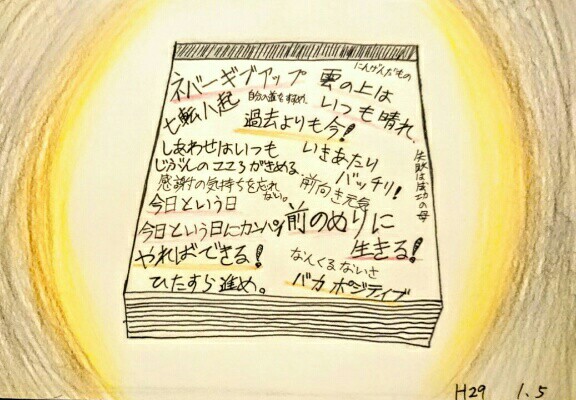 ネバーギブアップ
にんげんだもの
雲の上は
いつも晴れ、
七転八起
自分の道を極め、
過去よりも今!
しあわせはいつも
じぶんのこころがきめる、
いきあたり
バッチリ!
失敗は成功の母
感謝の気持ちを忘れ
ない。
前向き元気
今日という日
今日という日にカンパイ
前のめりに
生きる!
やればできる!
なんくるないさ
ひたすら進め。
バカポジティブ
H29 1.5